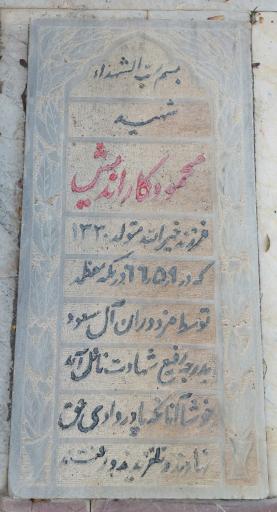 بسم رب الشهداء
شهید
محمود کاراندیش
فرزند خیرالله متولد ۱۳۲۰
که در ۶۶٫۵٫۹ در مکه معظمه
توسط مزدوران آل سعود
بدرجه رفیع شهادت نائل آمد
خوشا آنانکه پا در وادی حق
نهادند و